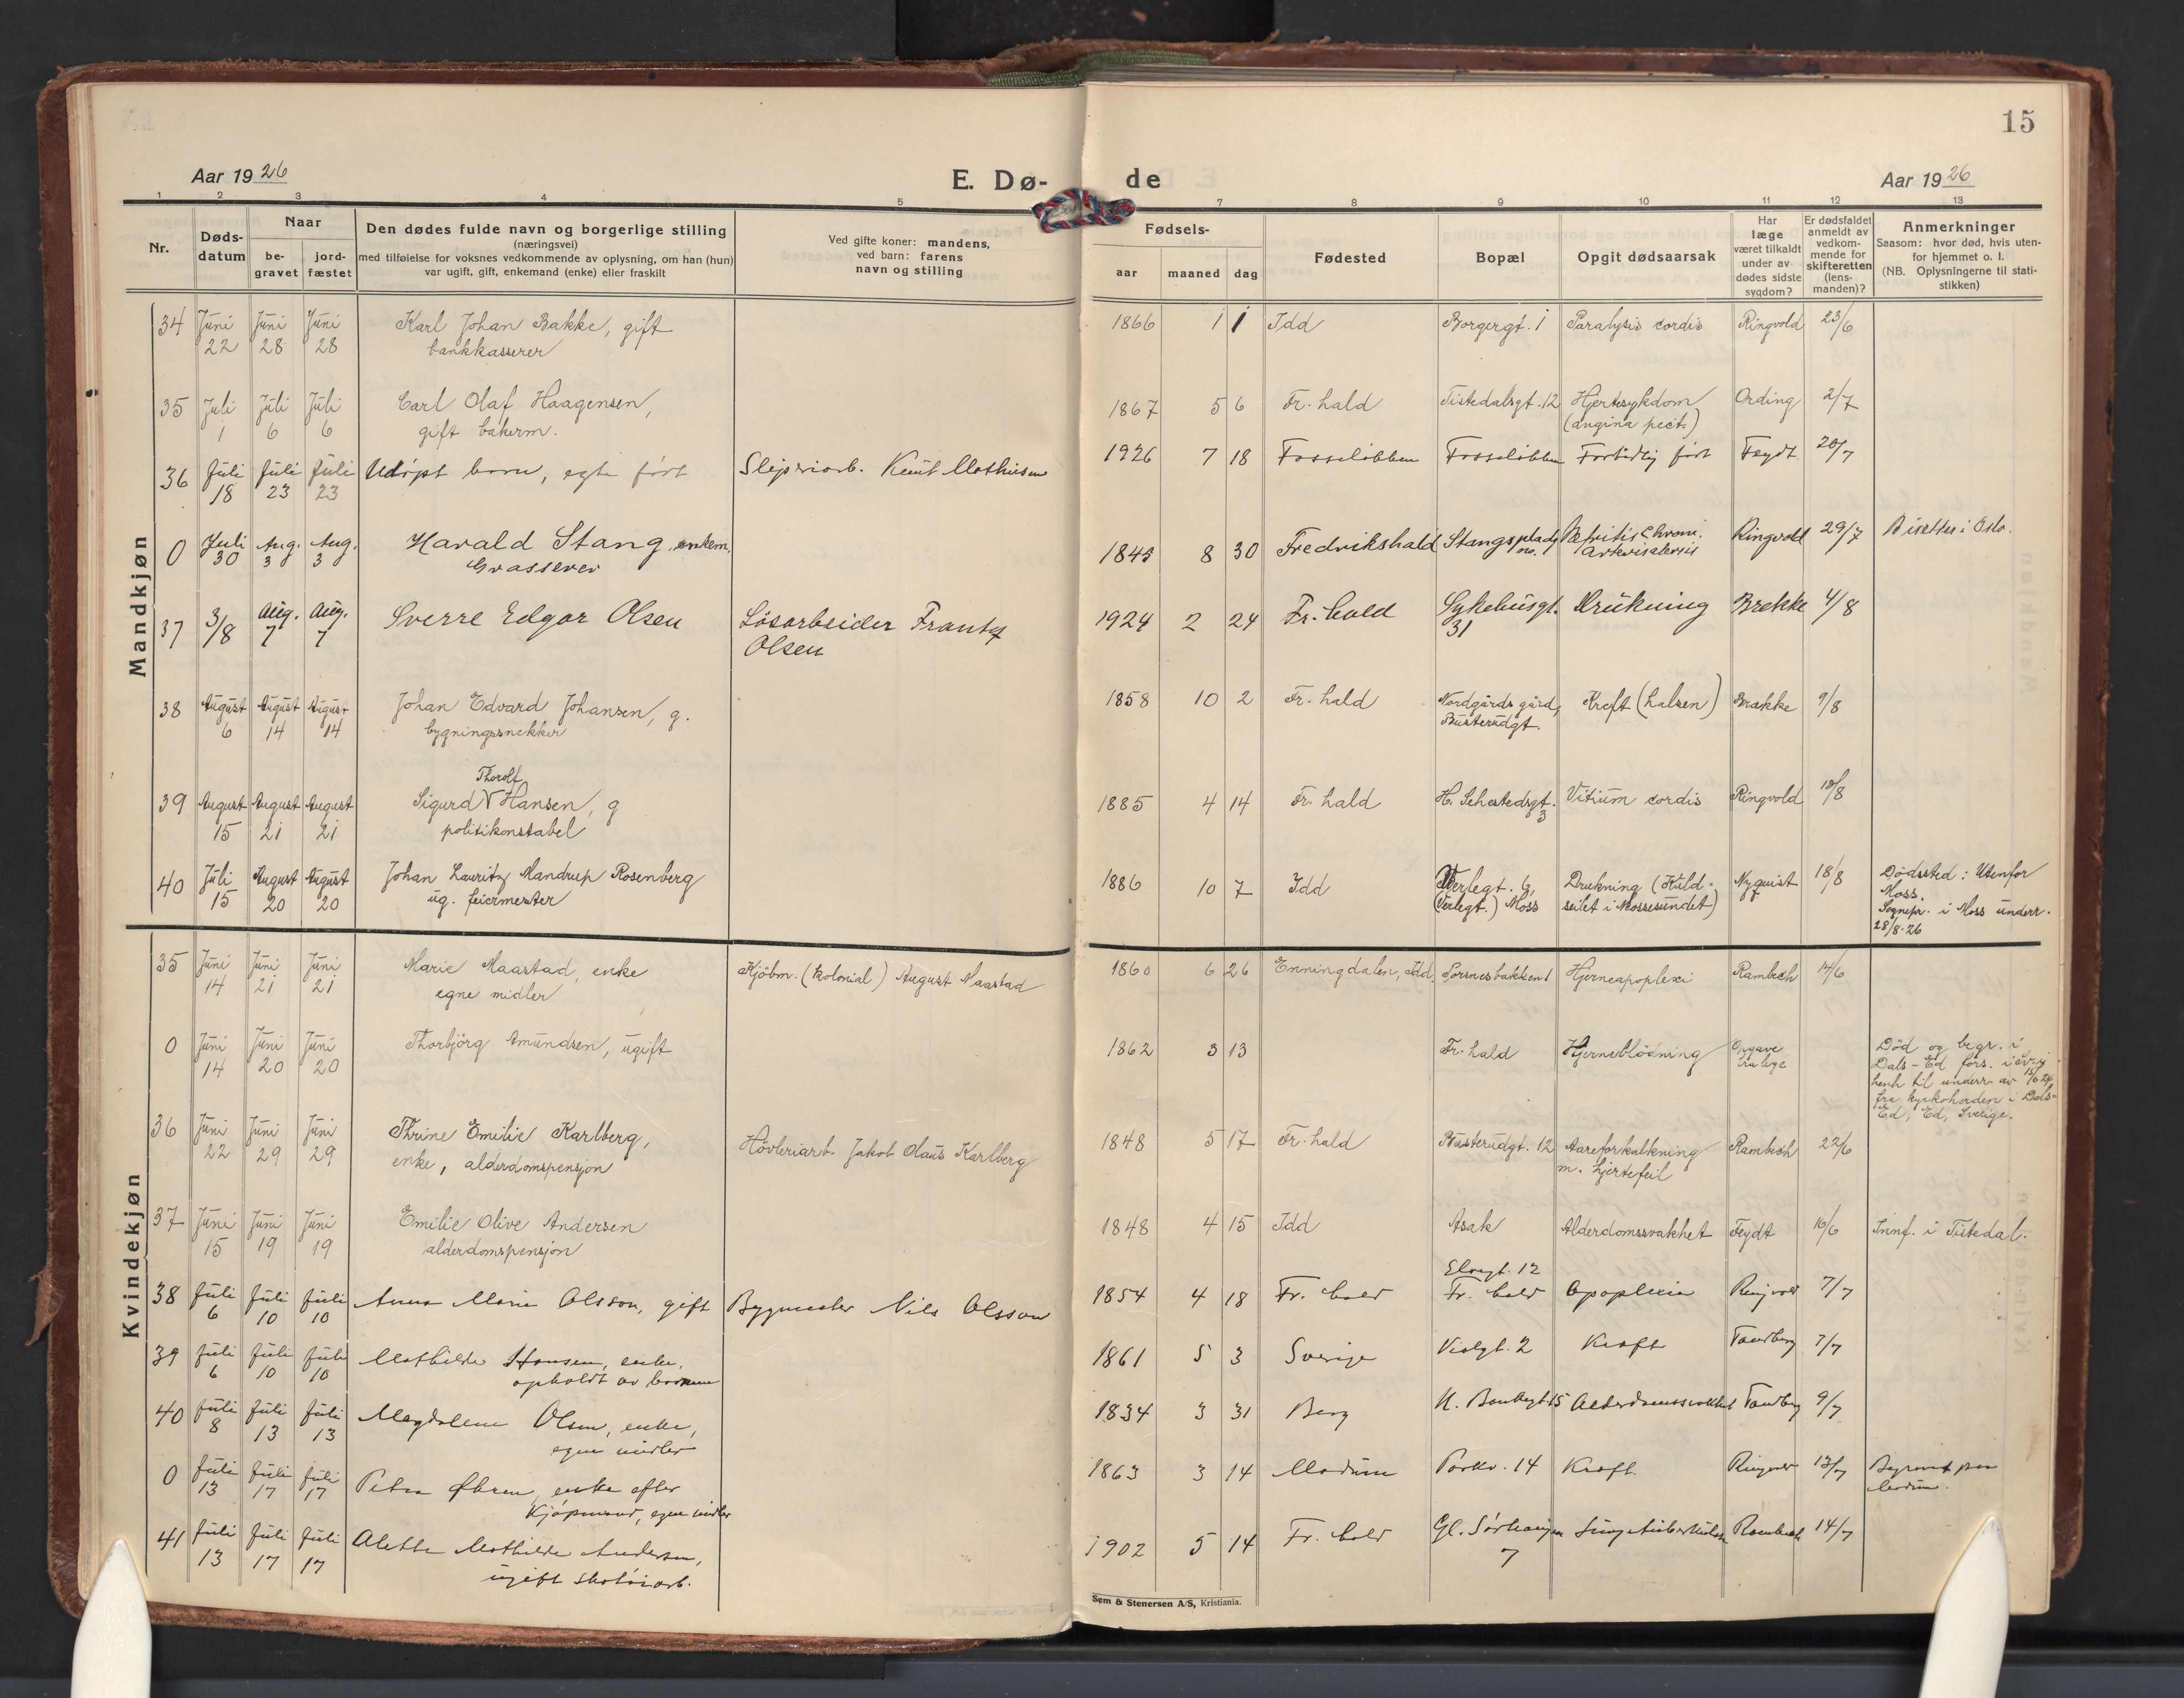 15
Aar 1926
E. Dø-
de
Aar 1926
1 2 3 4 5 7 8 9 10 11 12 13
Nr.
Døds-
datum
Naar
be-
gravet
jord-
fæstet
Den dødes fulde navn og borgerlige stilling
(næringsvei)
med tilføielse for voksnes vedkommende av oplysning, om han (hun)
var ugift, gift, enkemand (enke) eller fraskilt
Ved gifte koner: mandens,
ved barn: farens
navn og stilling
Fødsels-
aar maaned dag
Fødested
Bopæl
Opgit dødsaarsak
Har
læge
været tilkaldt
under av
dødes sidste
sygdom?
Er dødsfaldet
anmeldt av
vedkom-
mende for
skifteretten
(lens-
manden)?
Anmerkninger
Saasom: hvor død, hvis uten-
for hjemmet o. l.
(NB. Oplysningerne til stati-
stikken)
Mandkjøn
34 Juni Juni Juni Karl Johan Bakke, gift 1866 1 1 Idd Borgergt. 1 Paralysis cordis Ringvold 23/6
22 28 28 bankkasserer
35 Juli Juli Juli Carl Olaf Haagensen, 1867 5 6 Fr. hald Tistedalsgt. 12 Hjertesykdom Ording 2/7
1 6 6 gift bakerm. (angina pect.)
36 Juli Juli Juli Udøpt barn, egte født Sliperiarb. Knut Mathisen 1926 7 18 Fosseløkken Fosseløkken Fortidlig født Feydt 20/7
18 23 23
0 Juli Aug. Aug. Harald Stang, enkem. 1845 8 30 Fredrikshald Stangsplads Nefritis Chroni. Ringvold 29/7 Bisettes i Oslo.
30 3 3 Grosserer no.
37 3/8 Aug. Aug. Sverre Edgar Olsen Løsarbeider Frantz 1924 2 24 Fr. hald Sykehusgt. Drukning Brekke 4/8
7 7 Olsen 31
38 August August August Johan Edvard Johansen, g. 1858 10 2 Fr. hald Nordgårds gård, Kreft (halsen) Brække 9/8
6 14 14 bygningssnekker Busterudgt.
Thorolf
39 August August August Sigurd V Hansen, g 1885 4 14 Fr. hald H. Sehestedsgt. Vitium cordis Ringvold 18/8
15 21 21 politikonstabel 3
40 Juli August August Johan Lauritz Mandrup Rosenberg 1886 10 7 Idd Verlegt. 6, Drukning (Kuld- Nyquist 18/8 Dødssted: Utenfor
15 20 20 ug. feiermester (Verlegt.) Moss seilet i Mossesundet) Moss.
Sognepr. i Moss underr.
28/8-26
Kvindekjøn
35 Juni Juni Juni Marie Maastad, enke Kjöbm. (kolonial) August Maastad 1860 6 26 Enningdalen, Idd. Sorsnesbakken 1 Hjerneapoplexi Rambech 14/6
14 21 21 egne midler
0 Juni Juni Juni Thorbjörg Amundsen, ugift 1862 3 13 Fr. hald Hjerneblödning Opgave Död og begr. i
14 20 20 Dals-Ed fors. i Sverige
henh til underr. av
fra kyrkoherden i Dals-
Ed, Ed, Sverige.
36 Juni Juni Juni Thrine Emilie Karlberg, Hövleriarb. Jakob Olaus Karlberg 1848 5 17 Fr. hald Busterudgt. 12 Aareforkalkning Rambech 22/6
22 29 29 enke, alderdomspensjon m. hjertefeil
37 Juni Juni Juni Emilie Olive Andersen 1848 4 15 Idd Asak Alderdomssvakhet Feydt 16/6 Innf. i Tistedal.
15 19 19 alderdomspensjon
38 Juli Juli Juli Anna Marie Olsson, gift Bygmester Nils Olsson 1854 4 18 Fr. hald Fr. hald Apoplexia Ringvold 7/7
6 10 10
39 Juli Juli Juli Mathilde Hansen, enke. 1861 5 3 Sverige Violgt. 2 Kræft Tandberg 7/7
6 10 10 opholdt av barnene
40 Juli Juli Juli Magdalene Olsen, enke, 1834 3 31 Berg N. Bankegt 15 Alderdomssvakhet Tandberg 9/7
8 13 13 egne midler
0 Juli Juli Juli Petra Øhren, enke efter 1863 3 14 Modum Parkv. 14 Kræft. Ringvold 13/7 Begravet paa
13 17 17 Kjøpmand, egne midler Modum.
41 Juli Juli Juli Alette Mathilde Andersen, 1902 5 14 Fr. hald Gl. Sørhaugen Lungetuberkulose Rambech 14/7
13 17 17 ugift skotøiarb. 7
Sem & Stenersen A/S, Kristiania.